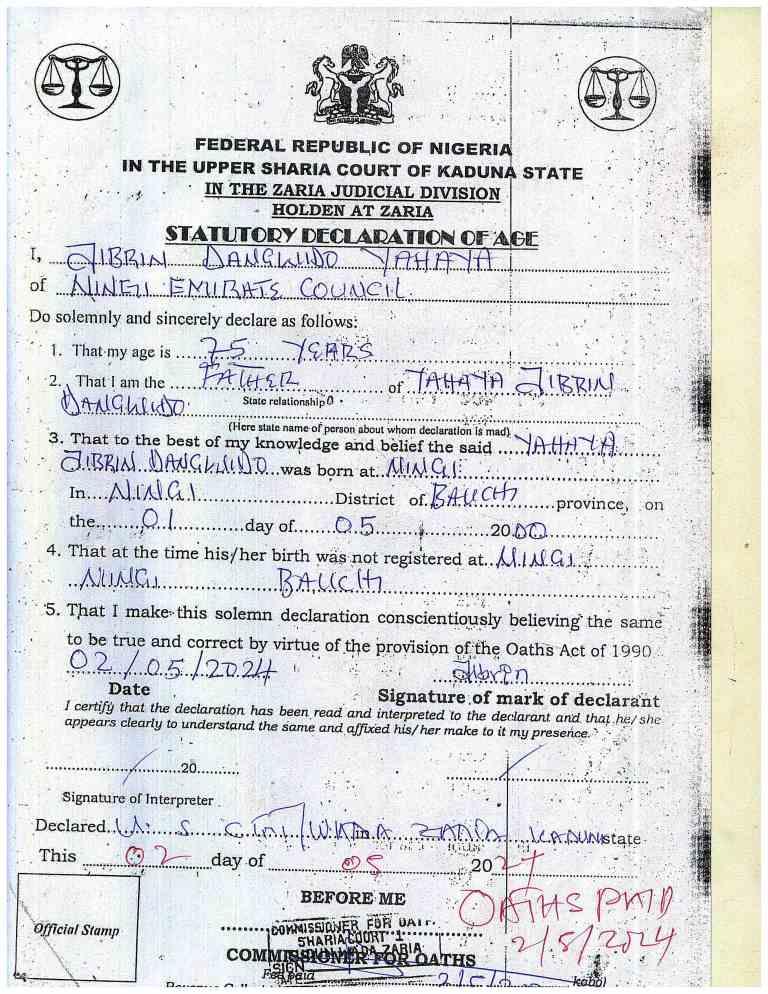 FEDERAL REPUBLIC OF NIGERIA
IN THE UPPER SHARIA COURT OF KADUNA STATE
IN THE ZARIA JUDICIAL DIVISION
HOLDEN AT ZARIA
STATUTORY DECLARATION OF AGE
I, JIBRIN DANGWIDO YAHAYA
of NINGI EMIRATE COUNCIL
Do solemnly and sincerely declare as follows:
1. That my age is 75 YEARS
2. That I am the FATHER of YAHAYA JIBRIN
DANGWIDO State relationship
(Here state name of person about whom declaration is mad)
3. That to the best of my knowledge and belief the said YAHAYA
JIBRIN DANGWIDO was born at NINGI
In NINGI District of BAUCHI province, on
the 01 day of 05 2000
4. That at the time his/her birth was not registered at NINGI
NINGI BAUCHI
5. That I make this solemn declaration conscientiously believing the same
to be true and correct by virtue of the provision of the Oaths Act of 1990
02/05/2024 Jibrin
Date Signature of mark of declarant
I certify that the declaration has been read and interpreted to the declarant and that he/she
appears clearly to understand the same and affixed his/her make to it my presence.
20
Signature of Interpreter
Declared in ZARIA KADUNA state
This 02 day of 05 2024
BEFORE ME
OATHS PAID
2/5/2024
Official Stamp
COMMISSIONER FOR OATH
SHARIA COURT 1
ZARIA
COMMISSIONER FOR OATHS
SIGN
Fee paid kobo)